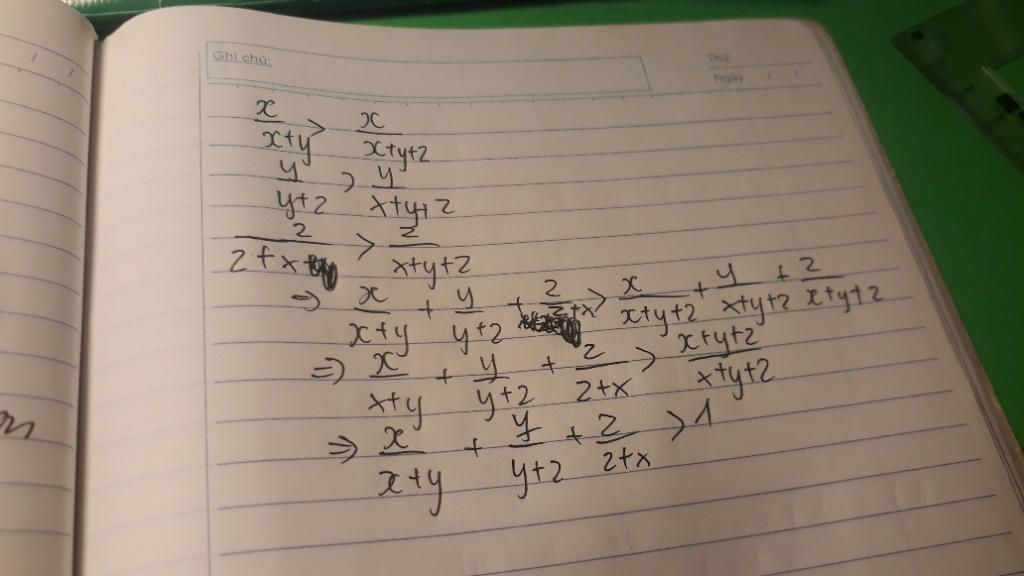 Ghi chú:
Thứ
Ngày / /
x/(x+y) > x/(x+y+z)
y/(y+z) > y/(x+y+z)
z/(z+x) > z/(x+y+z)
=> x/(x+y) + y/(y+z) + z/(z+x) > x/(x+y+z) + y/(x+y+z) + z/(x+y+z)
=> x/(x+y) + y/(y+z) + z/(z+x) > (x+y+z)/(x+y+z)
=> x/(x+y) + y/(y+z) + z/(z+x) > 1